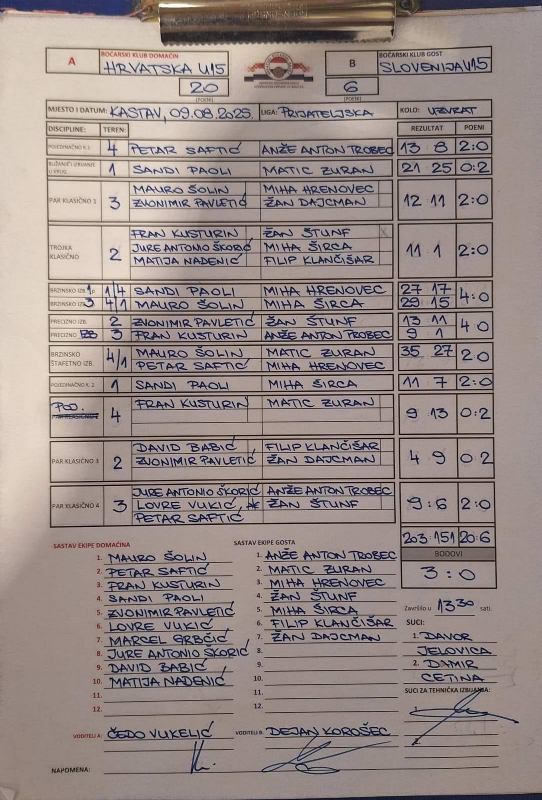 A BOČARSKI KLUB DOMAĆIN HRVATSKA U15 20 (POENI)
B BOČARSKI KLUB GOST SLOVENIJA U15 6 (POENI)
MJESTO I DATUM: KASTAV, 09.08.2025. LIGA: PRIJATELJSKA KOLO: UZVRAT
DISCIPLINE: TEREN: REZULTAT POENI
POJEDINAČNO K.1 4 PETAR SAFTIĆ ANŽE ANTON TROBEC 13 8 2:0
BLIŽANJE I IZBIJANJE U KRUG 1 SANDI PAOLI MATIC ZURAN 21 25 0:2
PAR KLASIČNO 1 3 MAURO ŠOLIN MIHA HRENOVEC 12 11 2:0
ZVONIMIR PAVLETIĆ ŽAN DAJCMAN
TROJKA KLASIČNO 2 FRAN KUSTURIN ŽAN ŠTUNF X 11 1 2:0
JURE ANTONIO ŠKORIĆ MIHA ŠIRCA
MATIJA NADENIĆ FILIP KLANČIŠAR
BRZINSKO IZB. 1/4 SANDI PAOLI MIHA HRENOVEC 27 17 4:0
BRZINSKO IZB. 4/1 MAURO ŠOLIN MIHA ŠIRCA 29 15
PRECIZNO IZB. 2 ZVONIMIR PAVLETIĆ ŽAN ŠTUNF 13 11 4 0
PRECIZNO 3 FRAN KUSTURIN ANŽE ANTON TROBEC 9 1
BRZINSKO ŠTAFETNO IZB. 4/1 MAURO ŠOLIN MATIC ZURAN 35 27 2:0
PETAR SAFTIĆ MIHA HRENOVEC
POJEDINAČNO K. 2 1 SANDI PAOLI MIHA ŠIRCA 11 7 2:0
POJ. 4 FRAN KUSTURIN MATIC ZURAN 9 13 0:2
PAR KLASIČNO 3 2 DAVID BABIĆ FILIP KLANČIŠAR 4 9 0 2
ZVONIMIR PAVLETIĆ ŽAN DAJCMAN
PAR KLASIČNO 4 3 JURE ANTONIO ŠKORIĆ ANŽE ANTON TROBEC 9:6 2:0
LOVRE VUKIĆ, * ŽAN ŠTUNF
PETAR SAFTIĆ
203:151 20:6
SASTAV EKIPE DOMAĆINA
1. MAURO ŠOLIN
2. PETAR SAFTIĆ
3. FRAN KUSTURIN
4. SANDI PAOLI
5. ZVONIMIR PAVLETIĆ
6. LOVRE VUKIĆ
7. MARCEL GRBČIĆ
8. JURE ANTONIO ŠKORIĆ
9. DAVID BABIĆ
10. MATIJA NADENIĆ
11.
12.
SASTAV EKIPE GOSTA
1. ANŽE ANTON TROBEC
2. MATIC ZURAN
3. MIHA HRENOVEC
4. ŽAN ŠTUNF
5. MIHA ŠIRCA
6. FILIP KLANČIŠAR
7. ŽAN DAJCMAN
8.
9.
10.
11.
12.
BODOVI
3:0
Završilo u 13 30 sati.
SUCI:
1. DAVOR
JELOVICA
2. DAMIR
CETINA
SUCI ZA TEHNIČKA IZBIJANJA:
1.
VODITELJ A: ČEDO VUKELIĆ VODITELJ B: DEJAN KOROŠEC
NAPOMENA: